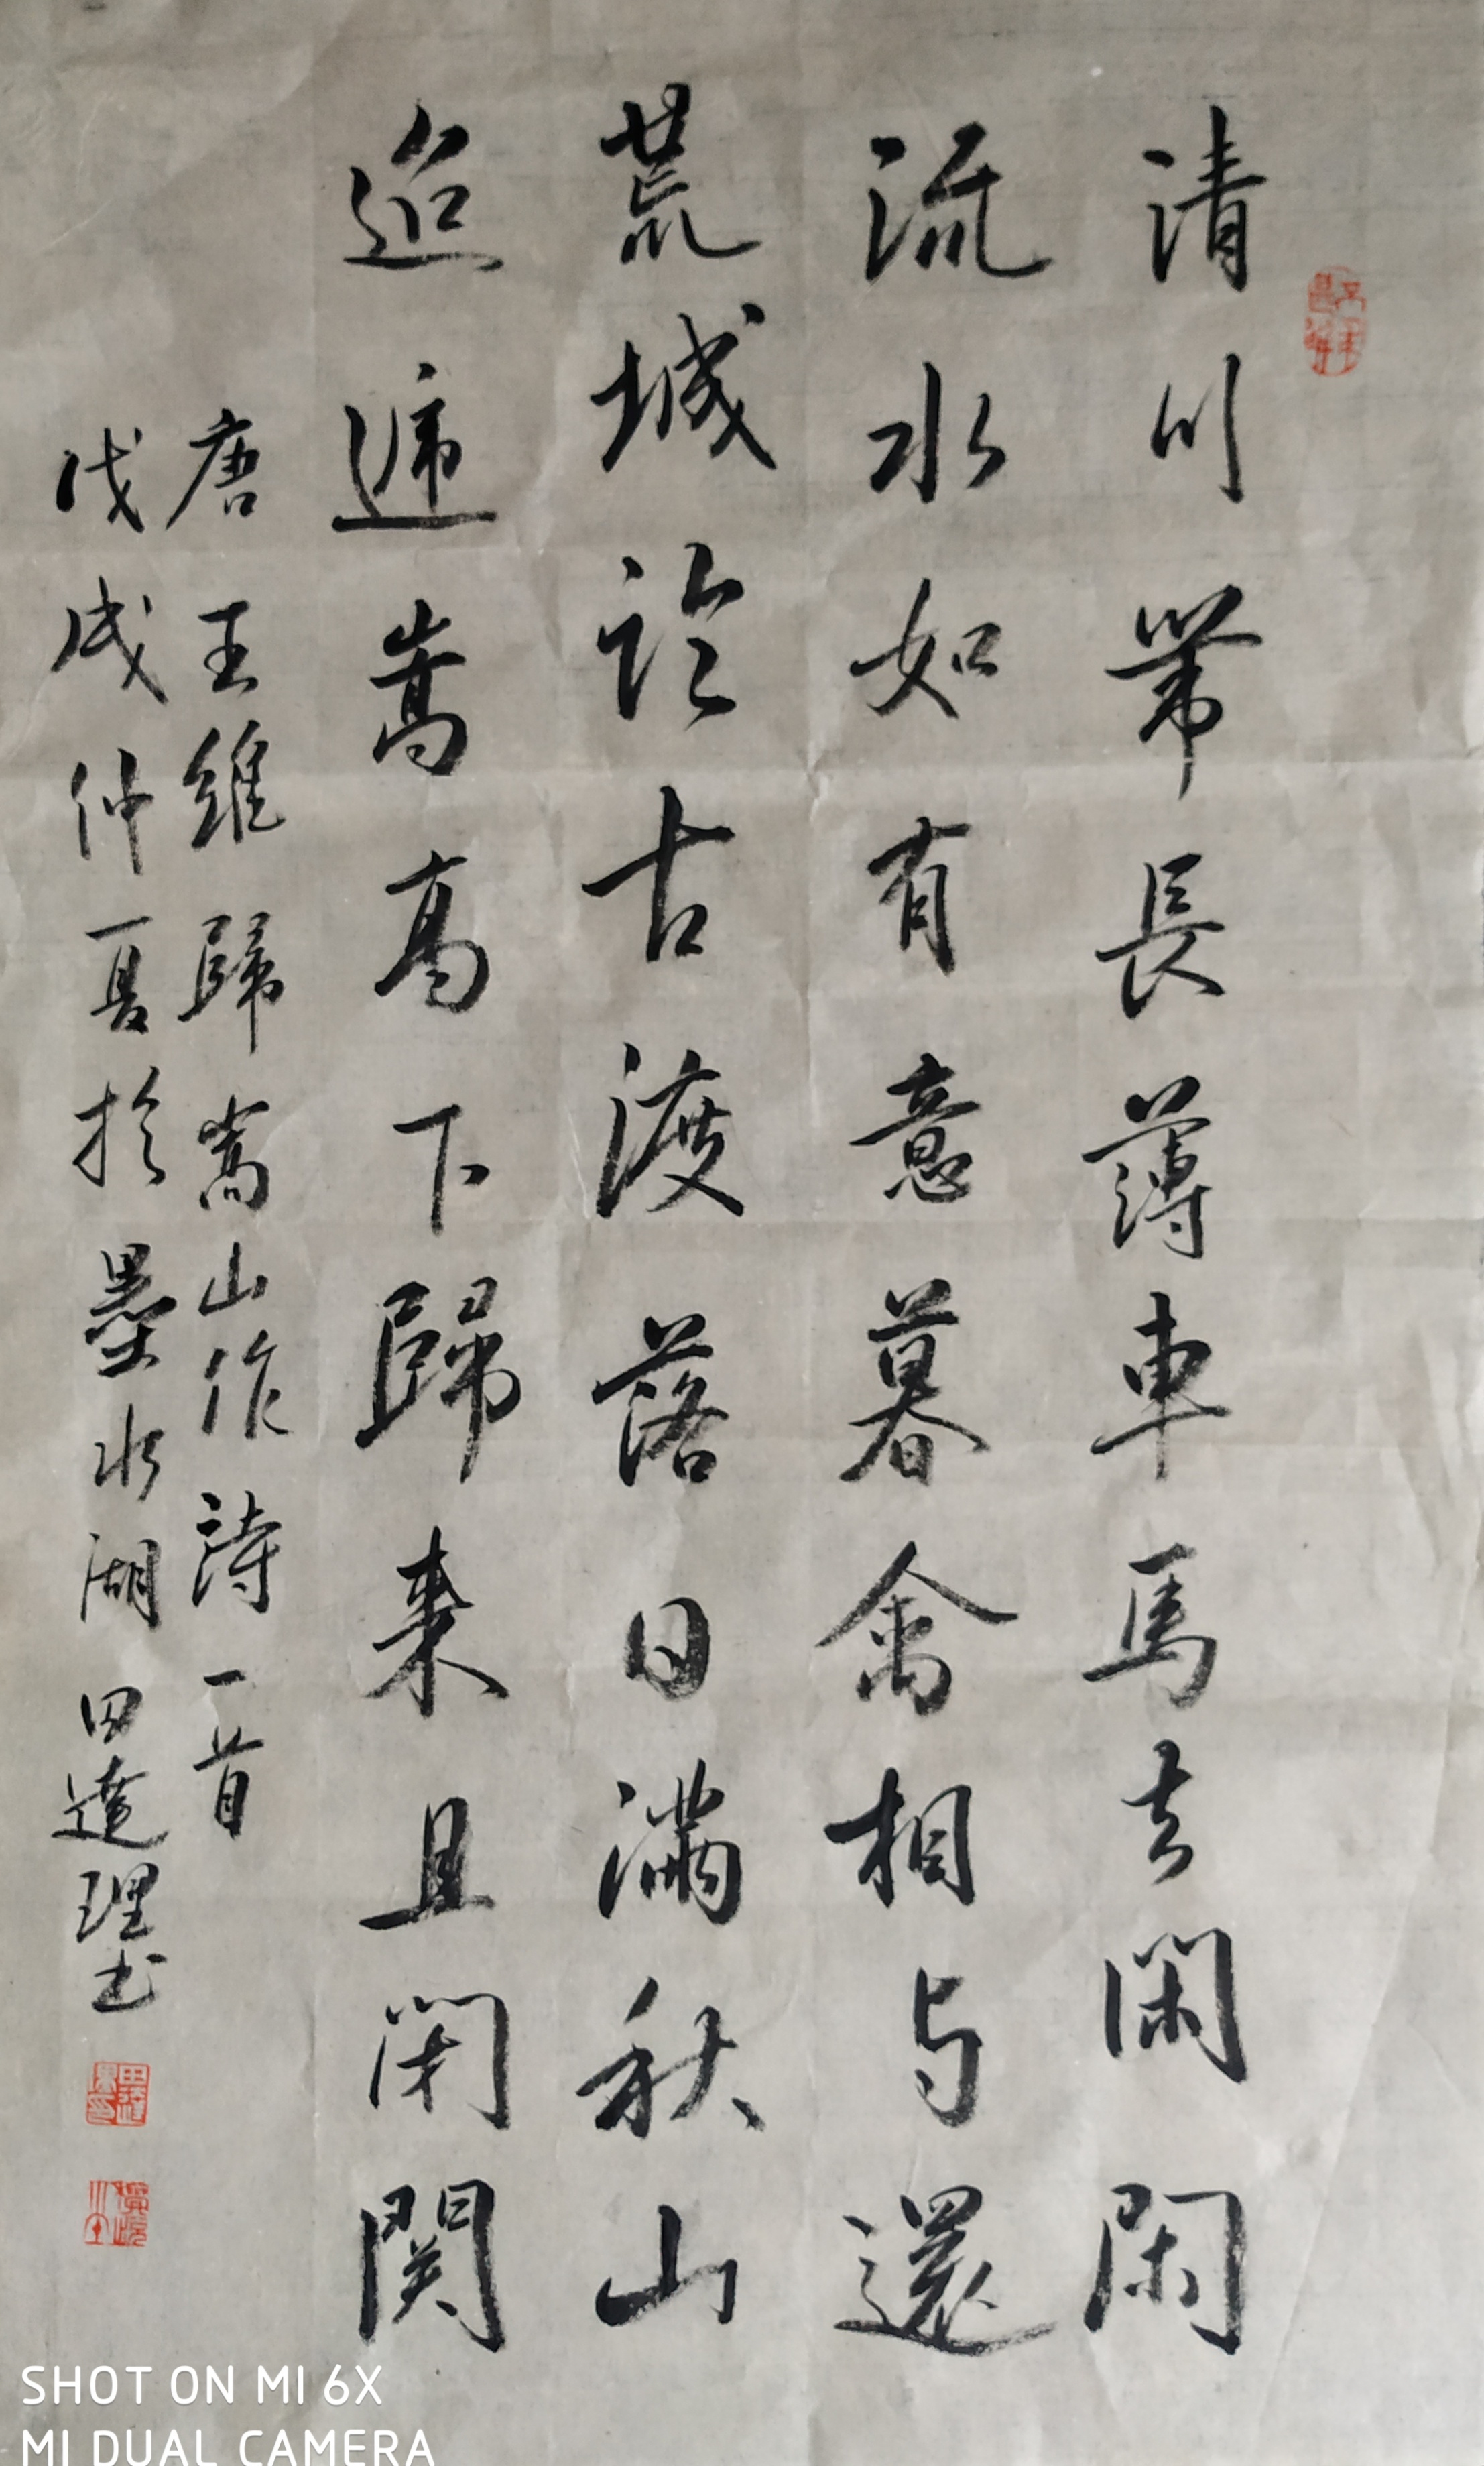 清川帶長薄車馬去閑閑
流水如有意暮禽相与還
荒城临古渡落日滿秋山
迢遞嵩高下歸来且閉関
唐王維歸嵩山作詩一首
戊戌仲夏於墨水湖田達理书
SHOT ON MI 6X
MI DUAL CAMERA